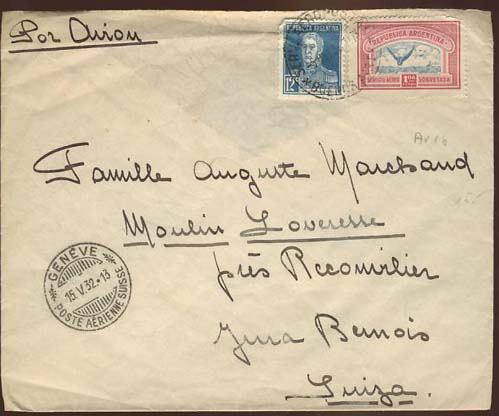 Por Avion
REPUBLICA ARGENTINA
12 Cs
REPUBLICA ARGENTINA
SERVICIO AEREO 1 SOBRETASA
Famille Auguste Marchand
Moulin Loveresse
près Reconvilier
Jura Bernois
Suiza.
GENÈVE
15.V.32·13
POSTE AÉRIENNE SUISSE